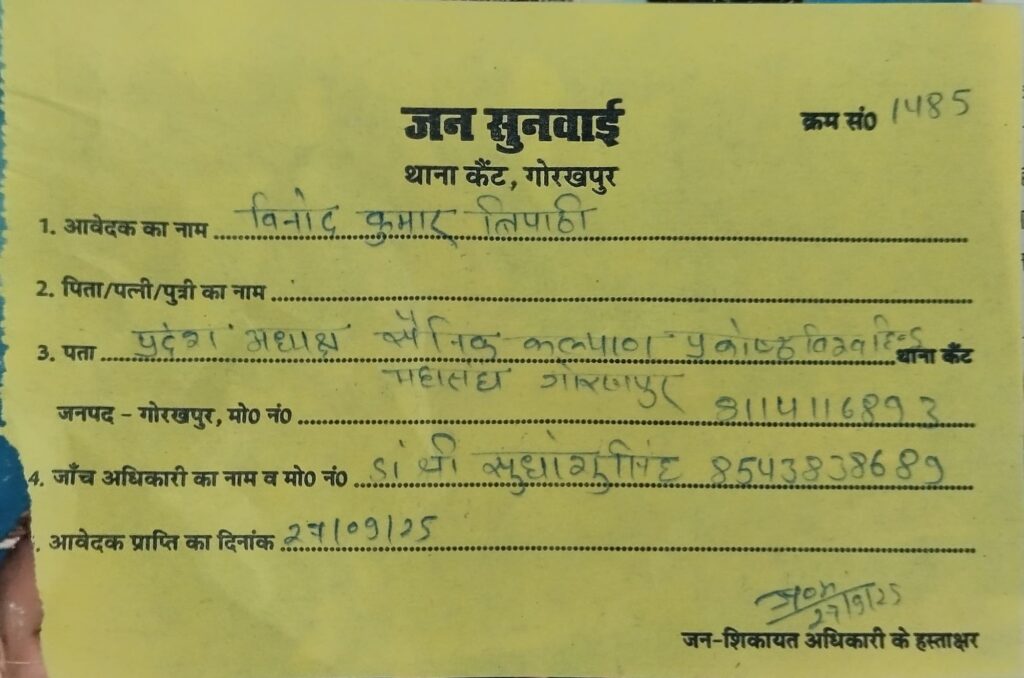 जन सुनवाई
क्रम सं0 1485
थाना कैंट, गोरखपुर
1. आवेदक का नाम विनोद कुमार त्रिपाठी
2. पिता/पत्नी/पुत्री का नाम
3. पता प्रदेश अध्यक्ष सैनिक कल्याण प्रकोष्ठ विश्व हिन्दू थाना कैंट
महासंघ गोरखपुर
जनपद - गोरखपुर, मो0 नं0 8114116893
4. जाँच अधिकारी का नाम व मो0 नं0 डां श्री सुधांशु सिंह 8543838689
. आवेदक प्राप्ति का दिनांक 27/09/25
27/9/25
जन-शिकायत अधिकारी के हस्ताक्षर